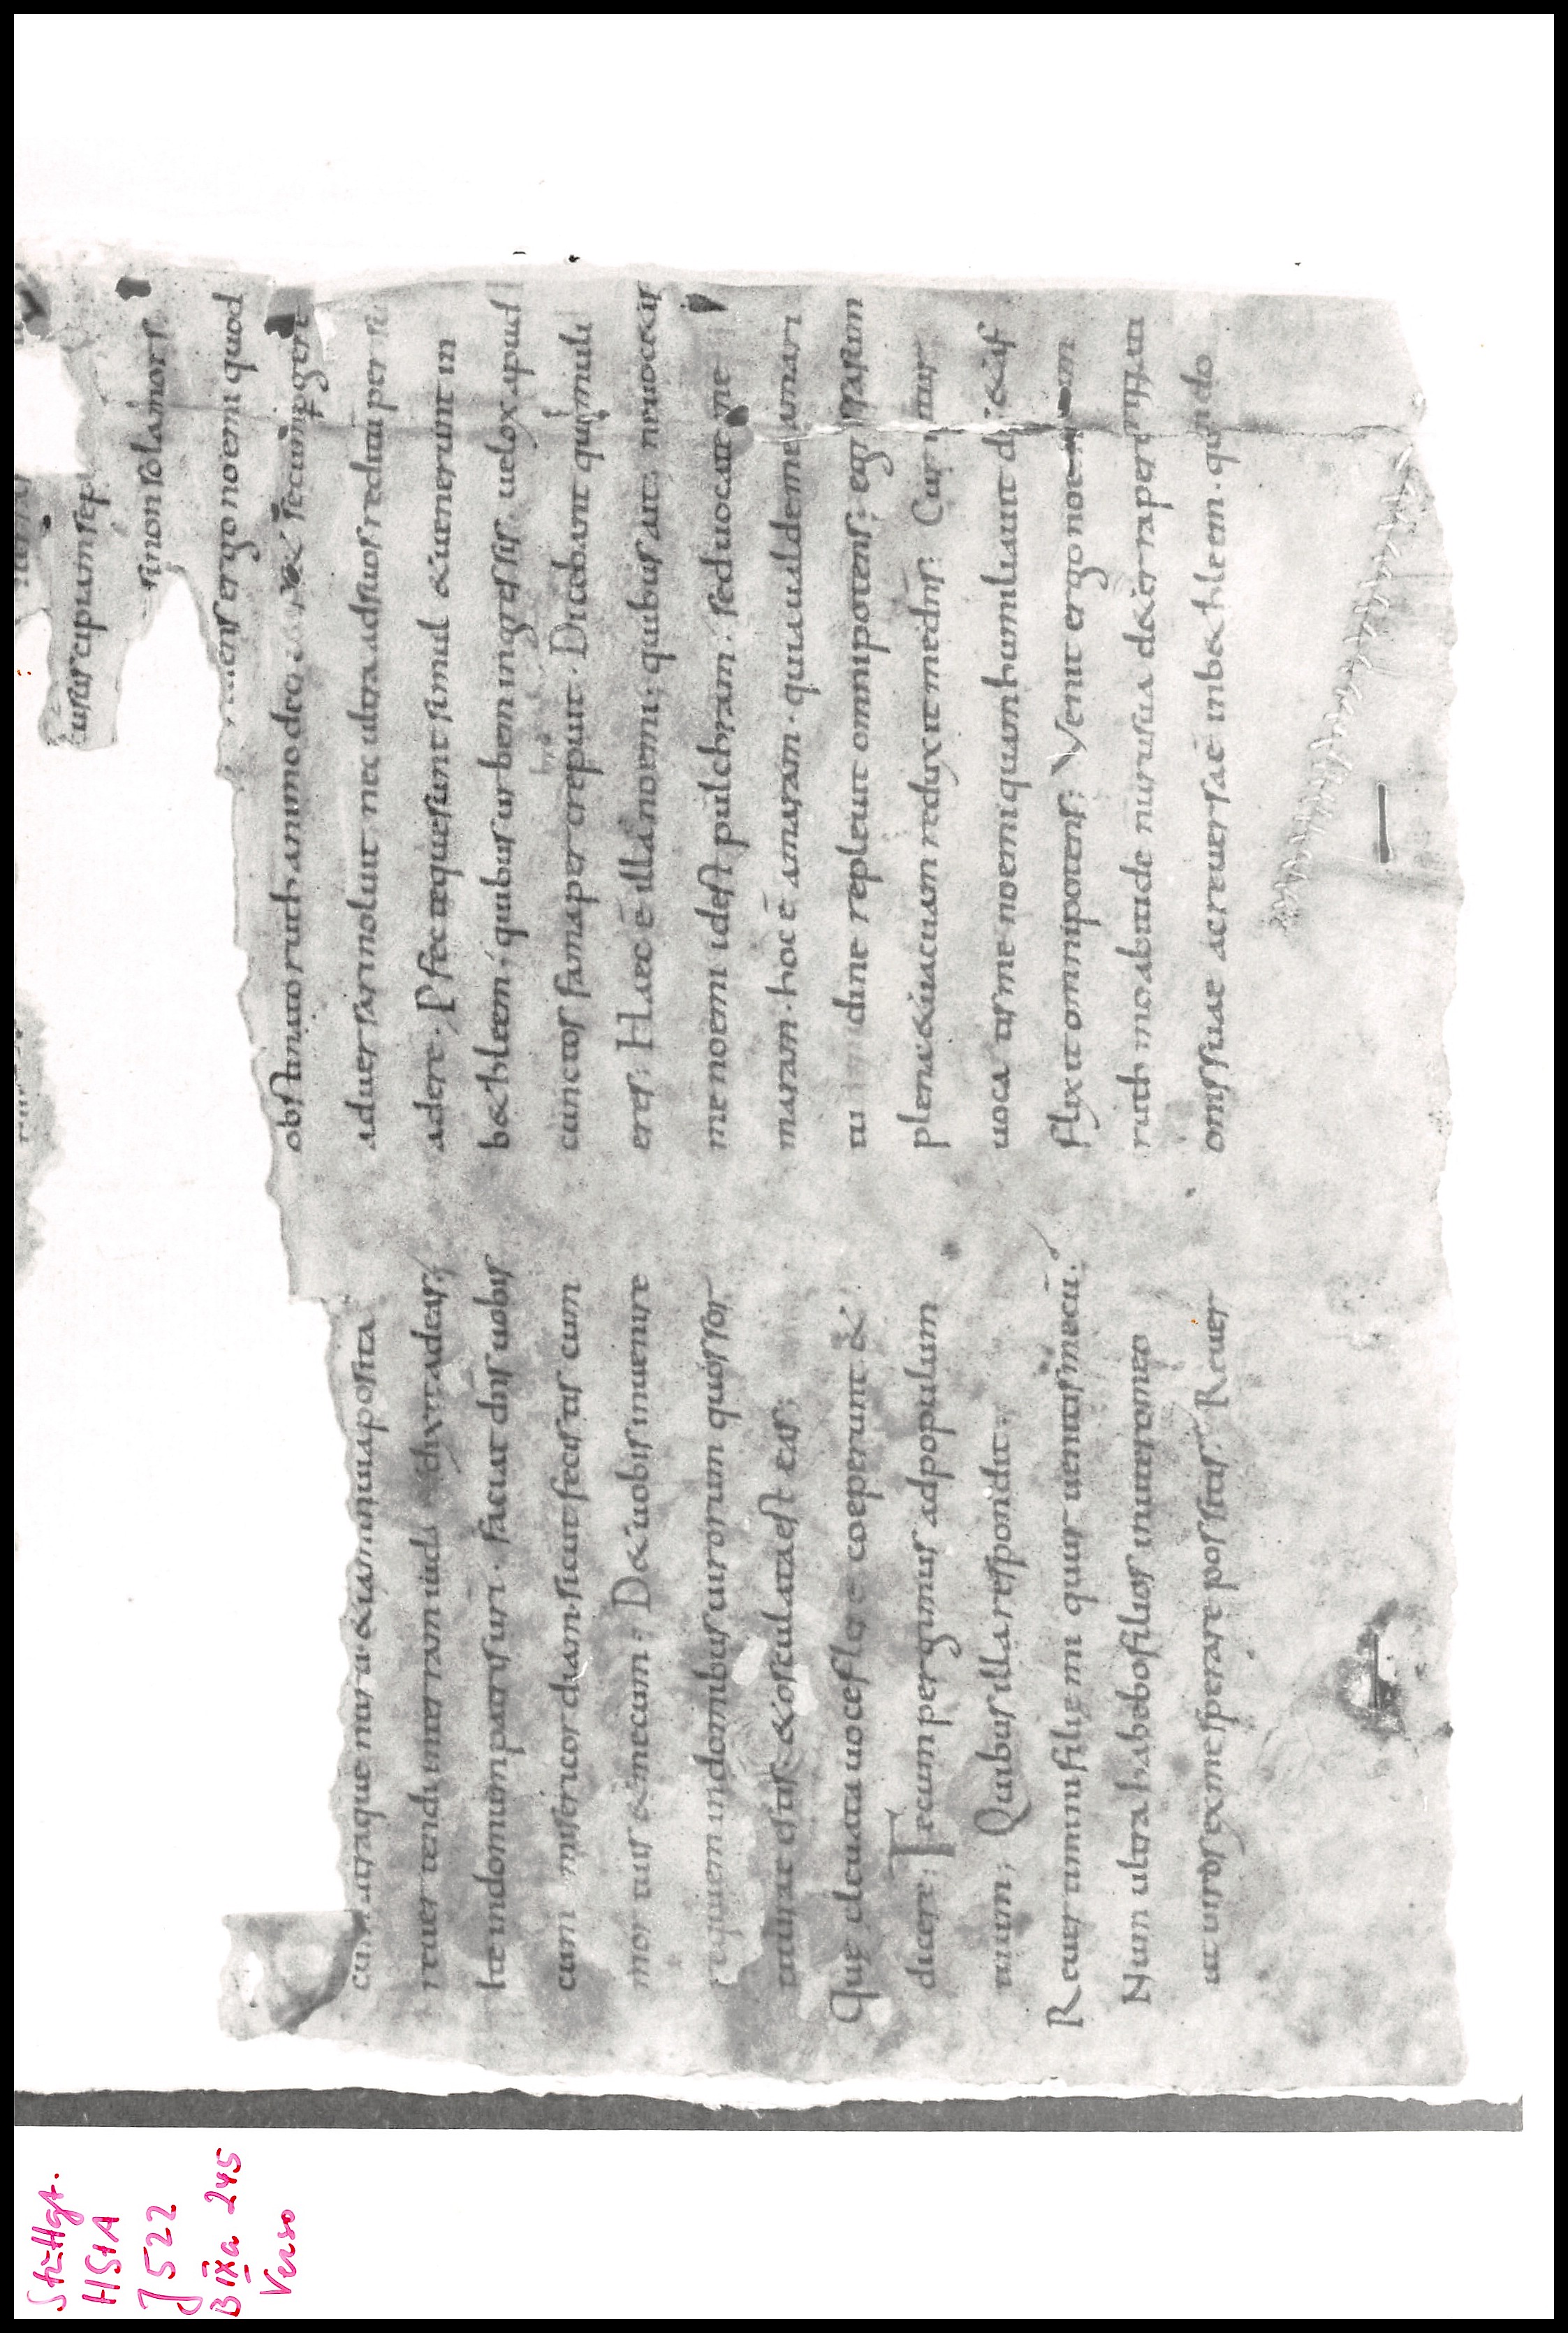 cum utraque nuru & iam in uia posita
reuertendi in terram iuda dixit ad eas;
Ite in domum matris uestri. faciat dns uobis
cum misericordiam. sicut fecistis cum
mortuis & mecum; D& uobis inuenire
requiem in domibus uirorum quos sor
titurae estis. & osculata est eas;
Que eleuata uoce flere coeperunt &
dicere; Tecum pergimus ad populum
tuum; Quibus illa respondit;
Reuertimini filie mi quur uenitis mecū.
Num ultra habebo filios in utero meo
ut uiros ex me sperare possitis. Reuer
cipiam sep
si non sola mors
ergo noemi quod
obstinato ruth animo decreu& secum pergere
aduersari noluit nec ultra ad suos reditū per su
adere. P fec teque sunt simul & uenerunt in
b&hleem; quibus urbem ingressis. uelox apud
cunctos fama percrepuit. Dicebant que muli
eres; Haec ē illa noemi; quibus ait. ne uoc&is
me noemi idest pulchram. sed uocate me
maram. hoc ē amaram. quia ualde me amari
tudine repleuit omnipotens; egressa sum
plena & uacuam reduxit me dns; Cur igitur
uocatis me noemi quam humiliauit dns & af
flixit omnipotens; Venit ergo noemi cum
ruth moabitide nurusua de terra peregrin
onis suae ac reuersa ē in b&hleem. quando
Stuttgt.
HStA
J 522
B IX a 245
Verso